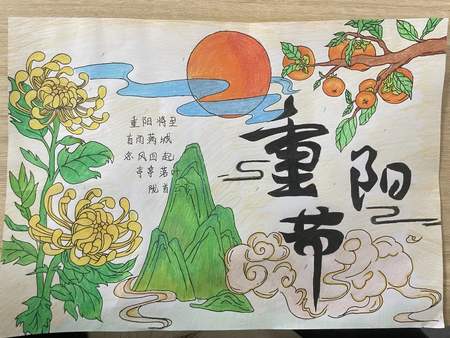 重阳节
重阳将至
盲雨满城
凉风四起
亭亭落叶
陇首